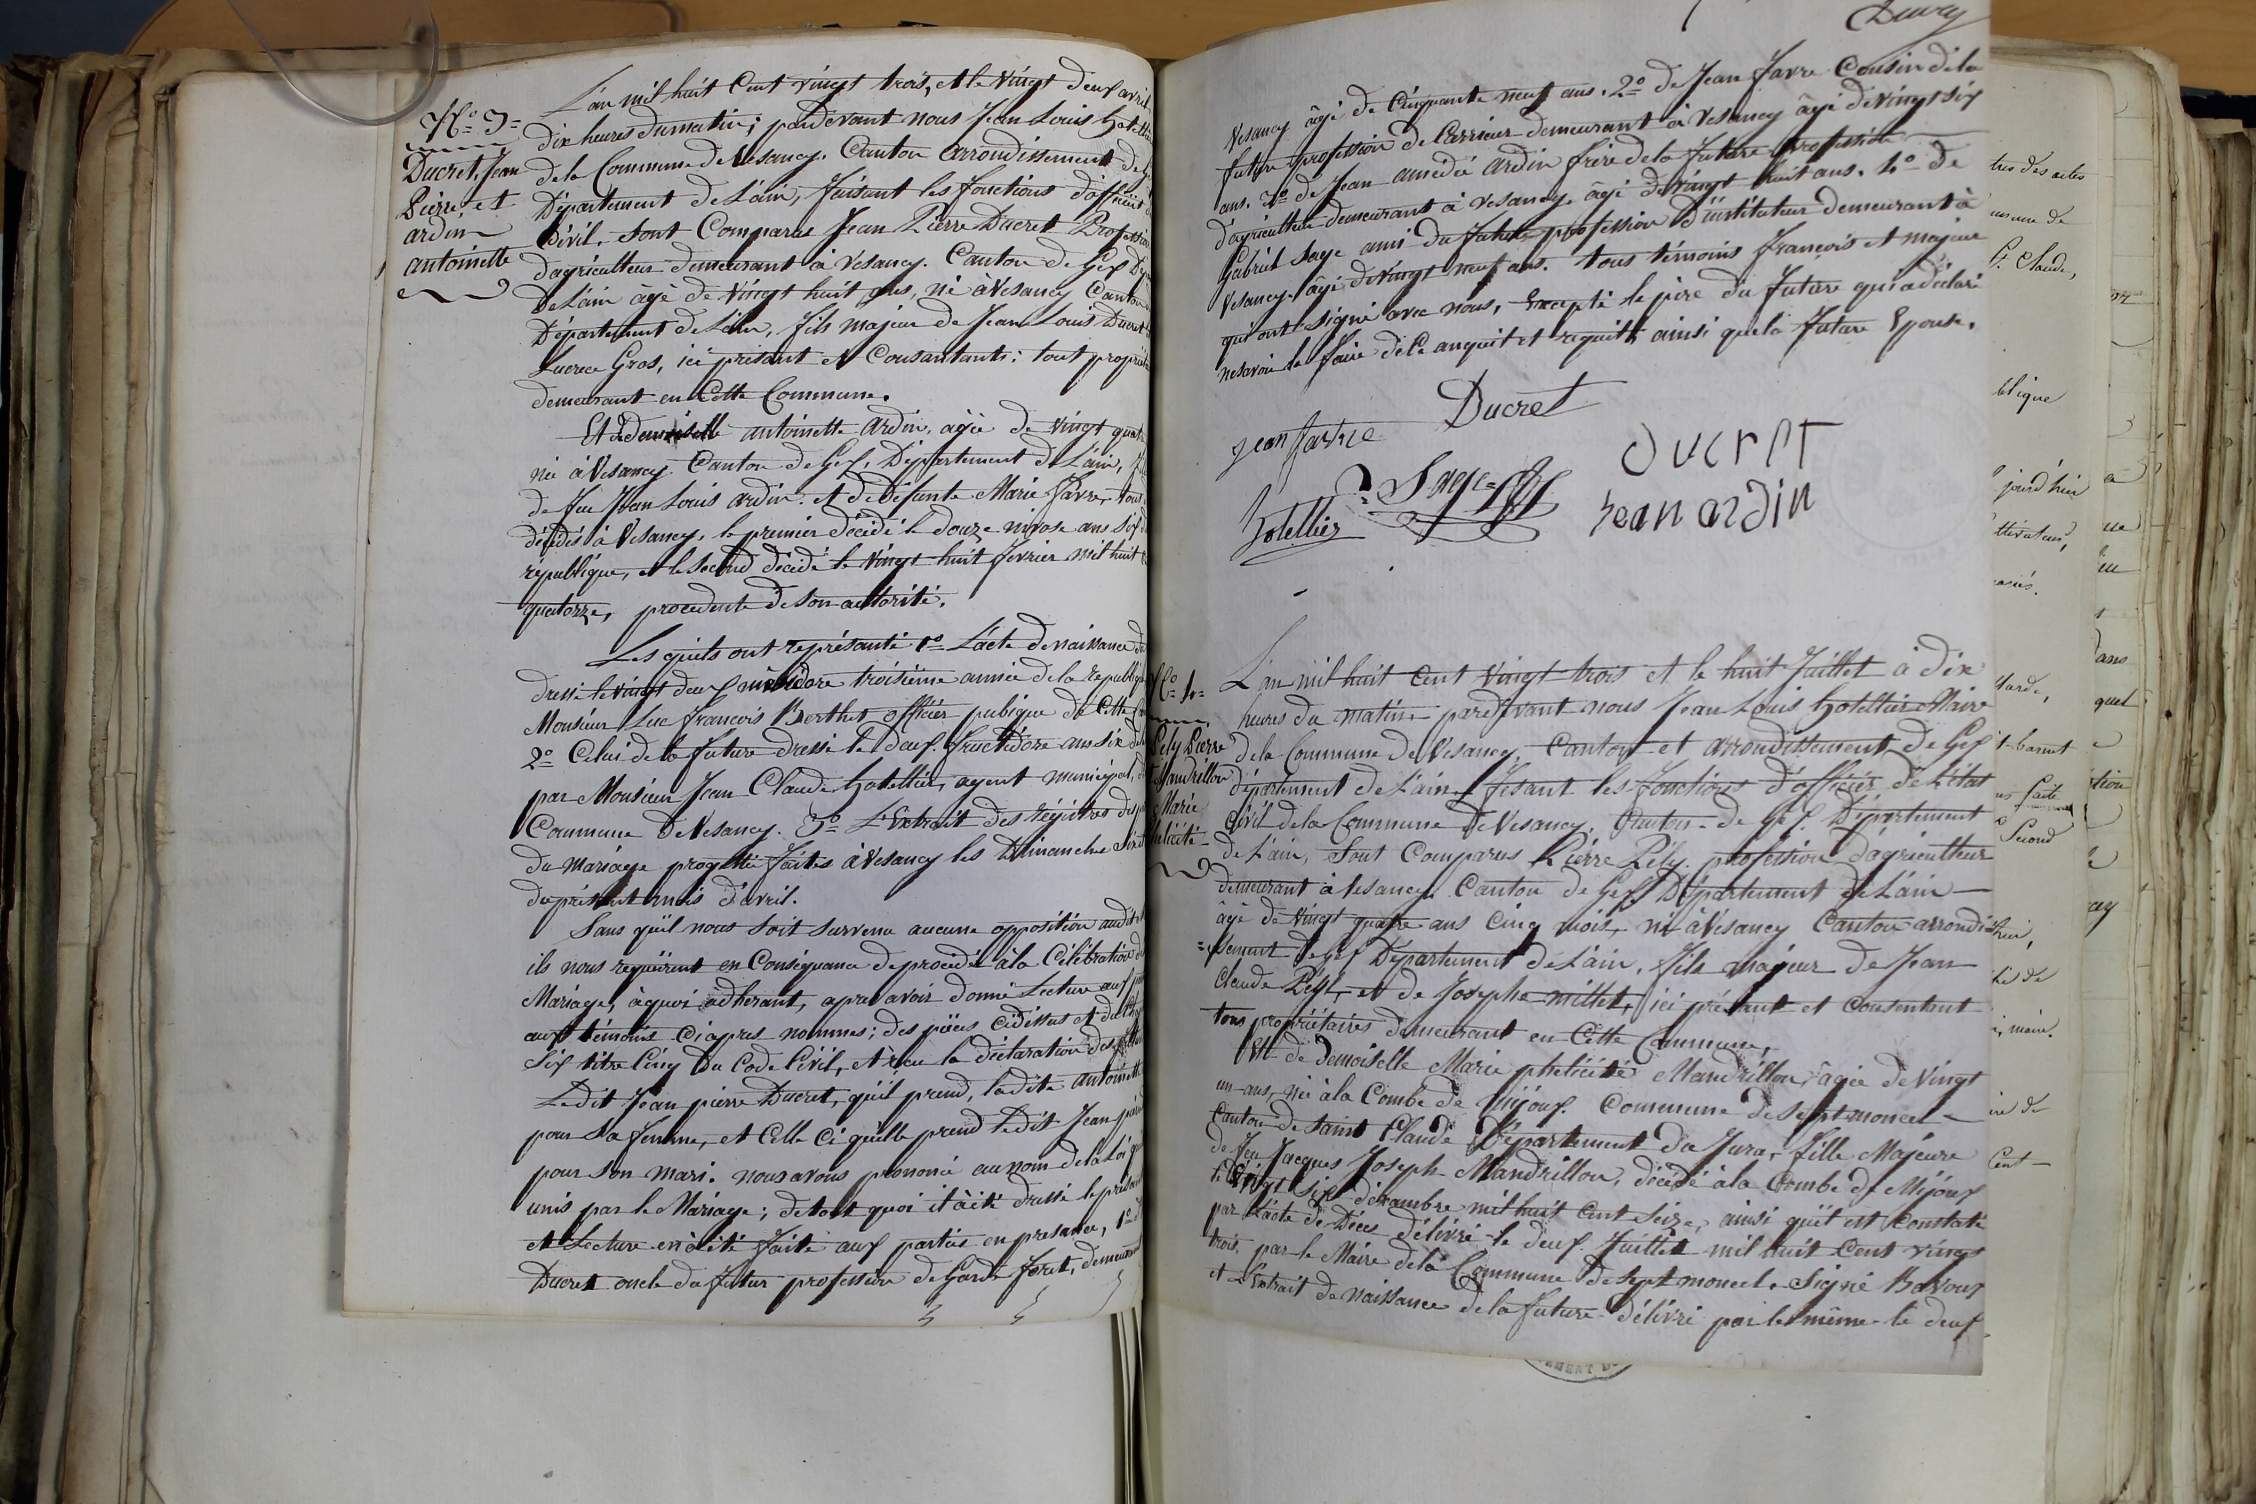 N.° 3=
Ducret, Jean
Pierre, et
ardin
antoinette
L'an mil huit Cent vingt trois, et le vingt deux avril
dix heures du matin; pardevant nous Jean Louis hotellier
de la Commune de Vesancy. Canton arrondissement de
Département de L'ain, faisant les fonctions d'officier
Civil. Sont Comparus Jean Pierre Ducret Profession
d'agriculteur demeurant à Vesancy. Canton de Gex
De L'ain âgé de vingt huit ans, né à Vesancy Canton
Département de L'ain, fils majeur de Jean Louis Ducret
Lucrece Gros, ici présant et Consantants: tout propriétaire
demeurant en Cette Commune.
Et demoiselle antoinette ardin, agée de vingt quatre
née à Vesancy. Canton de Gex, Département de L'ain,
de feu Jean Louis ardin. et de Défunte Marie favre, tous
décédés à Vesancy, le premier décédé le douze nivose ans six
république, et le second décédé le vingt huit fevrier mil huit
quatorze, procedente de son autorité.
Les quels ont représanté 1° L'acte de naissance
dressé le vingt deuxméssidore troisième année de la republique
Monsieur Luc francois Berthet officier pubique de Cette
2° Celui de la future dressé le deux. fructidore ans six de
par Monsieur Jean Claude hotellier, agent municipal,
Commune de Vesancy. 3° L'Extrait des régistres des
du mariage progetté faites à Vesancy les Dimanches
du présent mois d'avril.
Sans qu'il nous soit survenu aucune opposition audit
ils nous requièrent en Conséquance de procedér à la Célébration
Mariage, à quoi adhérant, apres avoir donné Lecture aux
aux témoins Ci apres nommés; des pièces Cidessus et du
Six titre Cinq du Code Civil, et reçu la déclaration des
Ledit Jean pierre Ducret, qu'il prend, ladite antoinette
pour Sa femme, et Celle Ci qu'elle prend ledit Jean
pour Son mari. nous avons prononcé au nom de la Loi
unis par le Mariage; de tout quoi il à été dressé le présant
et Lecture en à été faite aux parties en presance, 1°
Ducret oncle du futur profession de Garde foret, demeurant
Vesancy âgé de Cinquante neuf ans. 2° de Jean favre Cousin de la
future profession de Carrieur demeurant à Vesancy âgé de vingt six
ans. 3° de Jean amédée ardin frère de la future profession
d'agriculteur demeurant à Vesancy, âgé de vingt huit ans. 4° de
Gabriel Sage ami du futur profession D'instituteur demeurant à
Vesancy. âgé de vingt neuf ans. tous témoins françois et majeur
qui ont signé avec nous, Excepté le père du future qui a déclaré
ne savoir le faire de Ce anquit et requit, ainsi que la future Epouse.
Ducret
Jean favre
Ducret
Sage
Jean ardin
hotellier
N.° 4=
Pély Pierre
Mandrillon
Marie
L'an mil huit Cent vingt trois et le huit Juillet à dix
heures du matin pardevant nous Jean Louis hotellier Maire
de la Commune de Vesancy, Canton et arrondissement de Gex
département de L'ain, fesant les fonctions d'officier de L'état
Civil de la Commune de Vesancy. Canton de Gex. Département
de L'ain, Sont Comparus Pierre Pély. profession d'agriculteur
demeurant à Vesancy. Canton de Gex. Département de L'ain
âgé de vingt quatre ans Cinq mois, né à Vesancy Canton arrondi
=sement de Gex Département de L'ain, fils majeur de Jean
Claude Pély, et de Josephe millet, ici présant et Consentant
tous propriétaires demeurant en Cette Commune,
Et de Demoiselle Marie phelicité Mandrillon, âgée de Vingt
un ans, née à la Combe de Mijoux. Commune de Septmoncel
Canton de saint Claude Département du Jura, fille Majeure
de feu Jacques Joseph Mandrillon, décédé à la Combe de Mijoux
le vingt six décembre mil huit Cent Seize, ainsi qu'il est Constaté
par L'acte de Décès délivré le deux Juillet mil huit Cent vingt
trois, par le Maire de la Commune de Septmoncel. Signé Bavoux
et L'extrait de naissance de la future délivré par le même le deux